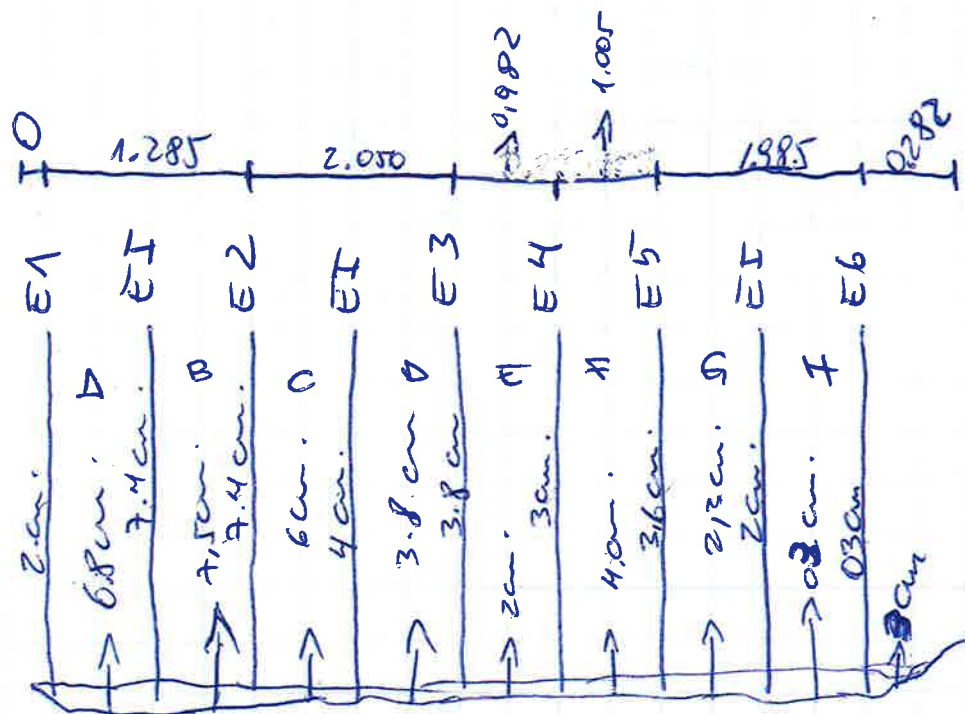 0 1.285 2.050 0,982 1.005 1.985 0.282
E1 EI E2 EI E3 E4 E5 EI E6
B C D G
2 cm. 6.8 cm. 7.4 cm. 7,5 cm. 7.4 cm. 6 cm. 4 cm. 3.8 cm 3.8 cm 2 cm. 3 cm. 4 cm. 3,6 cm. 2 cm. 03 cm. 03 cm 3 cm